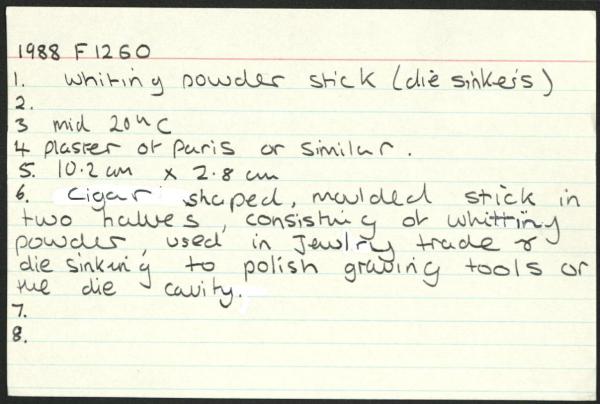 1988 F1260
1. Whiting powder stick (die sinkers)
2.
3 mid 20th C
4 plaster of Paris or similar.
5. 10.2 cm x 2.8 cm
6. Cigar shaped, moulded stick in
two halves, consisting of whitting
powder, used in Jewlry trade &
die sinking to polish graving tools or
the die cavity.
7.
8.